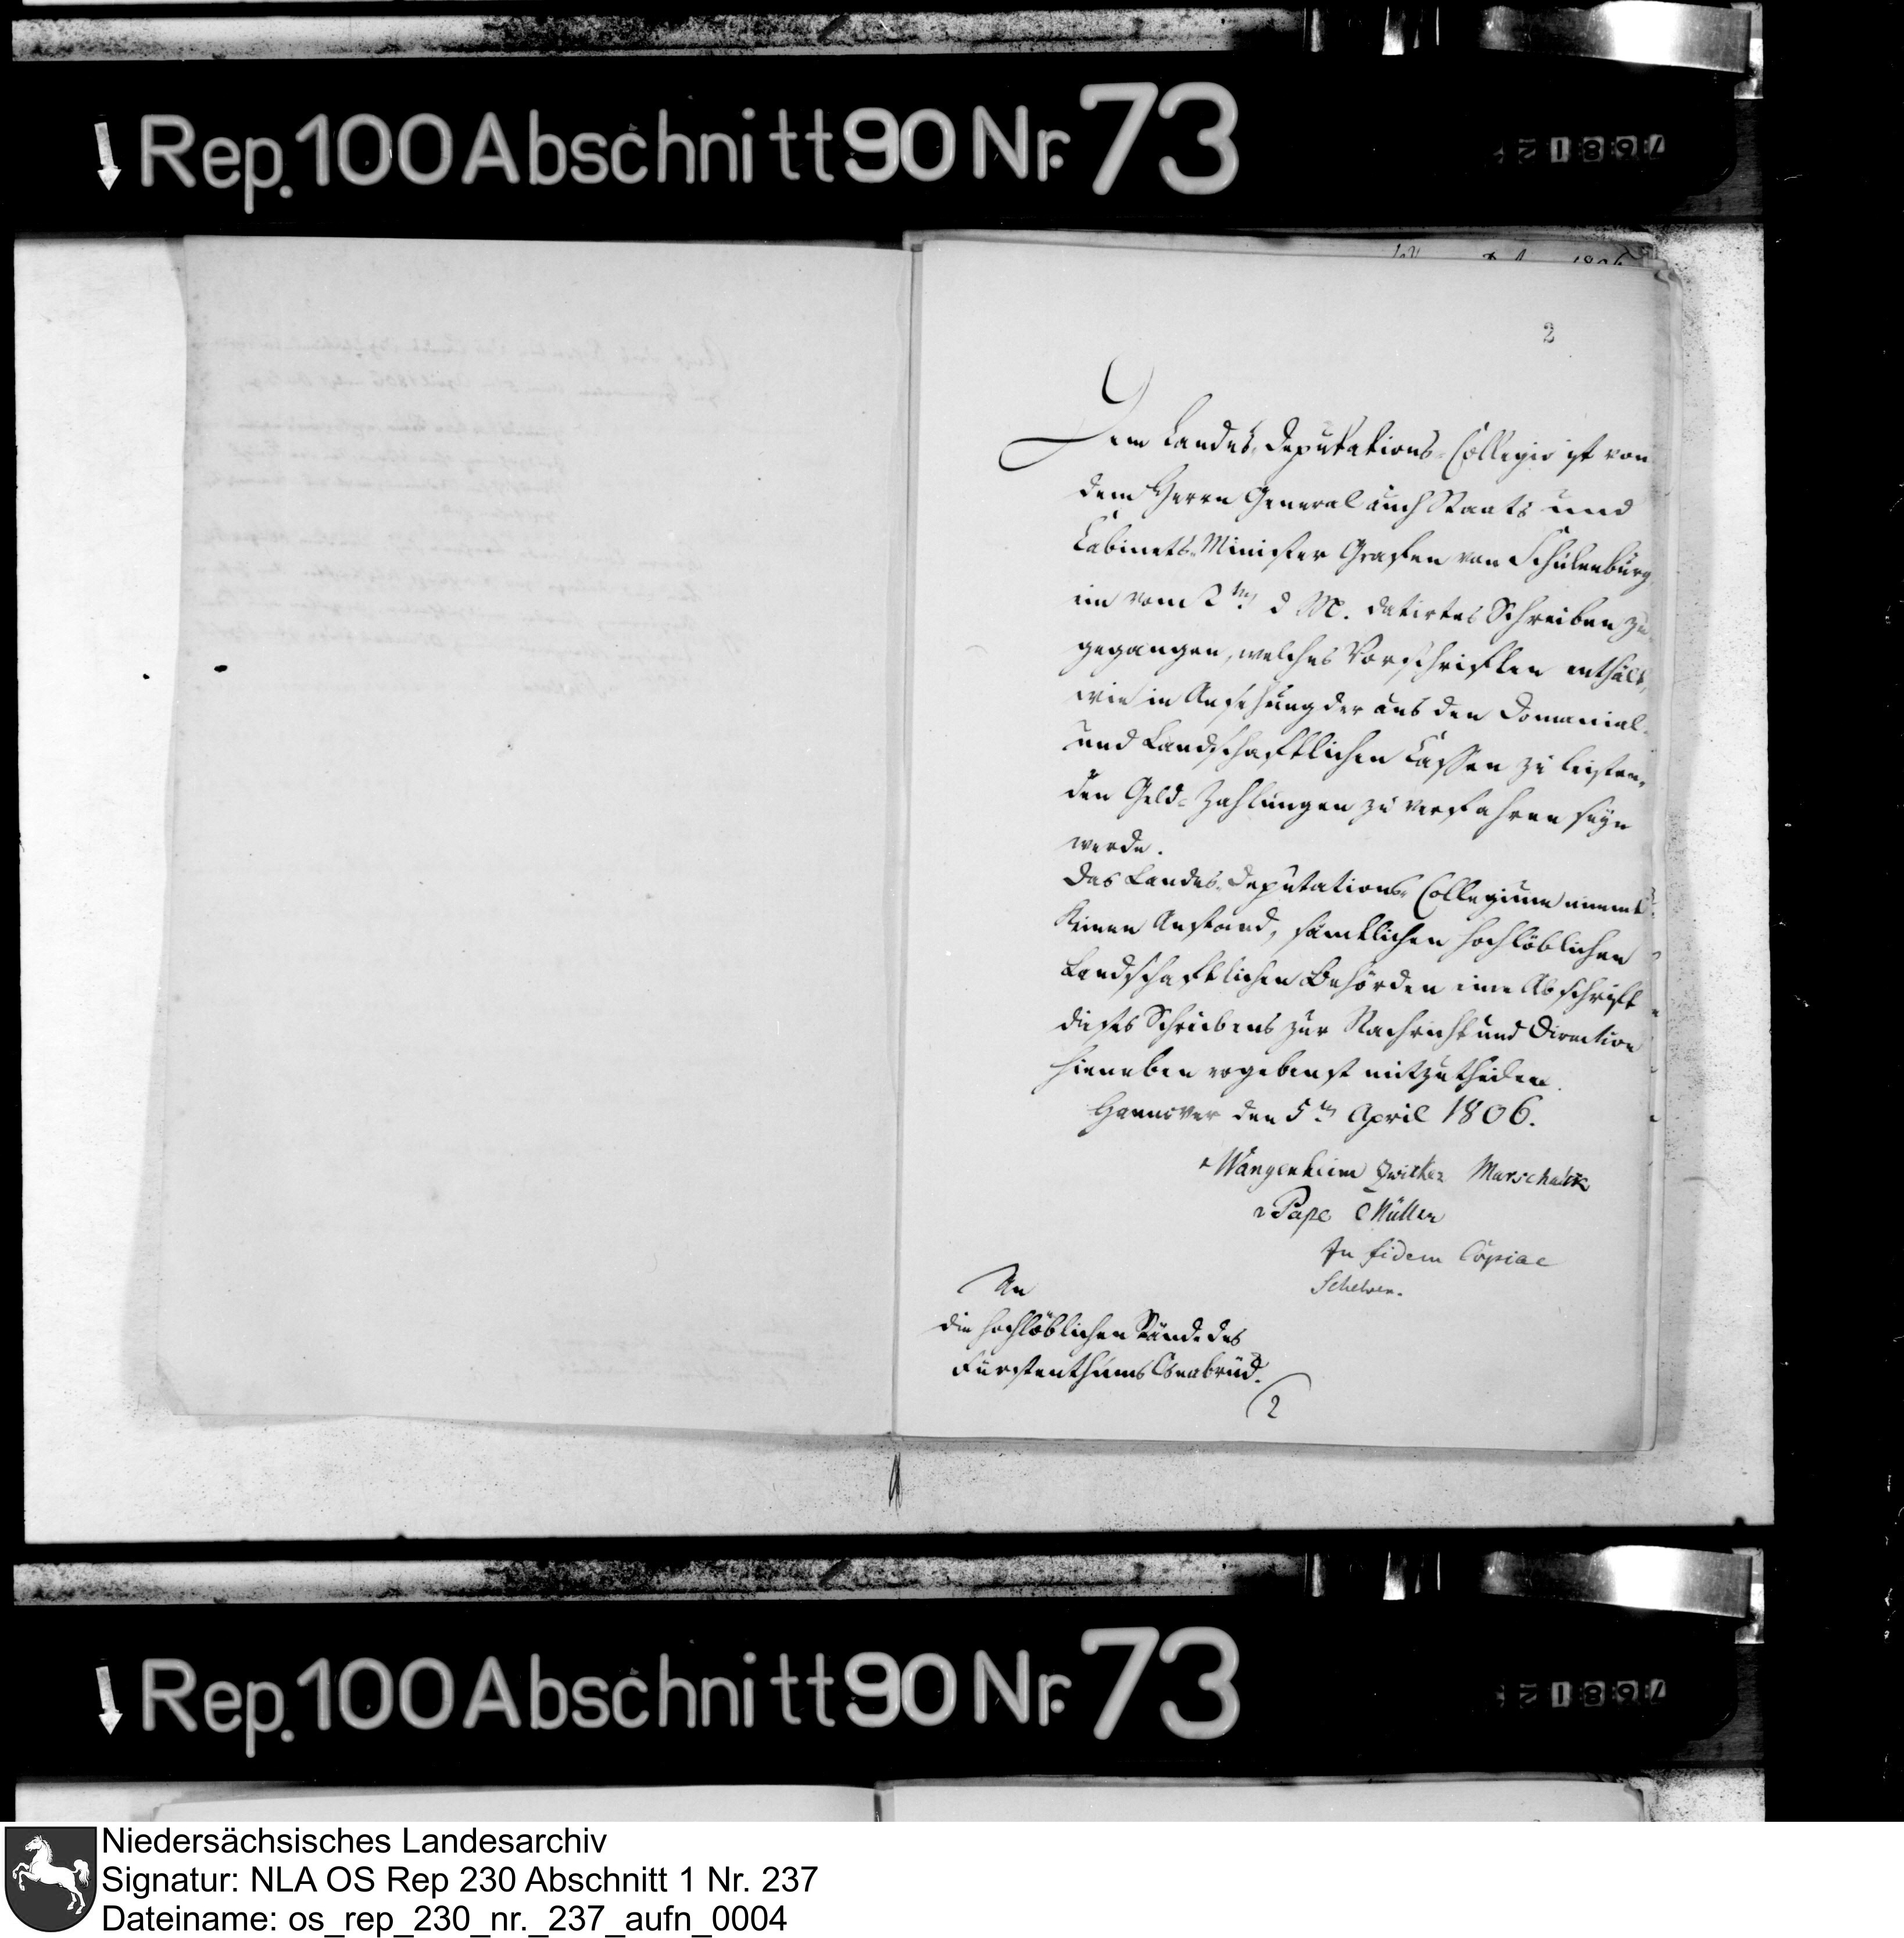 Rep. 100 Abschnitt 90 Nr. 73
2
Dem Landes-Deputations-Collegio ist von
dem Herrn General auch Staats und
Cabinets-Minister Grafen von Schulenburg
ein vom 2ten d M. datirtes Schreiben zu-
gegangen, welches Vorschriften enthält,
wie in Ansehung der aus den Domanial-
und Landschaftlichen Cassen zu leisten-
den Geld-Zahlungen zu verfahren seyn
werde.
Das Landes-Deputations-Collegium nimmt
keinen Anstand, sämtlichen hochlöblichen
Landschaftlichen Behörden eine Abschrift
dieses Schreibens zur Nachricht und Direction
hieneben ergebenst mitzutheilen.
Hannover den 5ten April 1806.
v Wangenheim Zwicker Marschalk
v Pape CMüller
In fidem Copiae
An
die hochlöblichen Stände des
Fürstenthums Osnabrück.
2
Rep. 100 Abschnitt 90 Nr. 73
Niedersächsisches Landesarchiv
Signatur: NLA OS Rep 230 Abschnitt 1 Nr. 237
Dateiname: os_rep_230_nr._237_aufn_0004